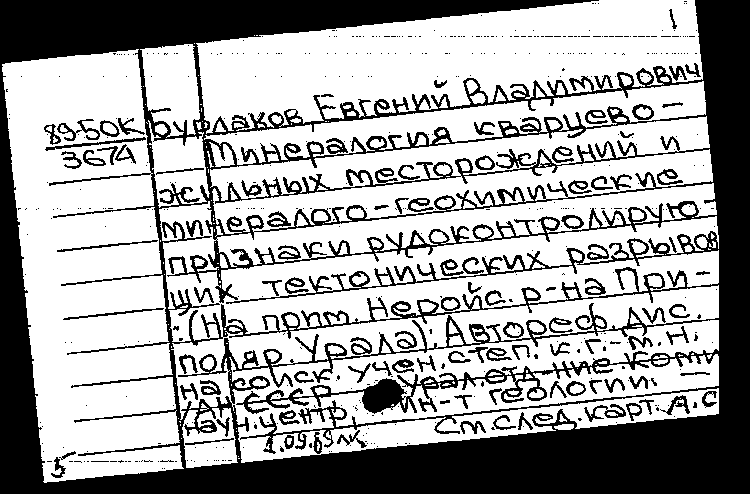 1
89-50К Бурлаков, Евгений Владимирович
367А Минералогия кварцево-
жильных месторождений и
минералого-геохимические
признаки рудоконтролирую-
щих тектонических разрывов
: (На прим. Неройс. р-на При-
поляр. Урала): Автореф. дис.
на соиск. учен. степ. к.г.-м.н.
/АН СССР, Урал. отд-ние. Коми
науч. центр, ин-т геологии. —
1.09.89 См след. карт. А.С
5